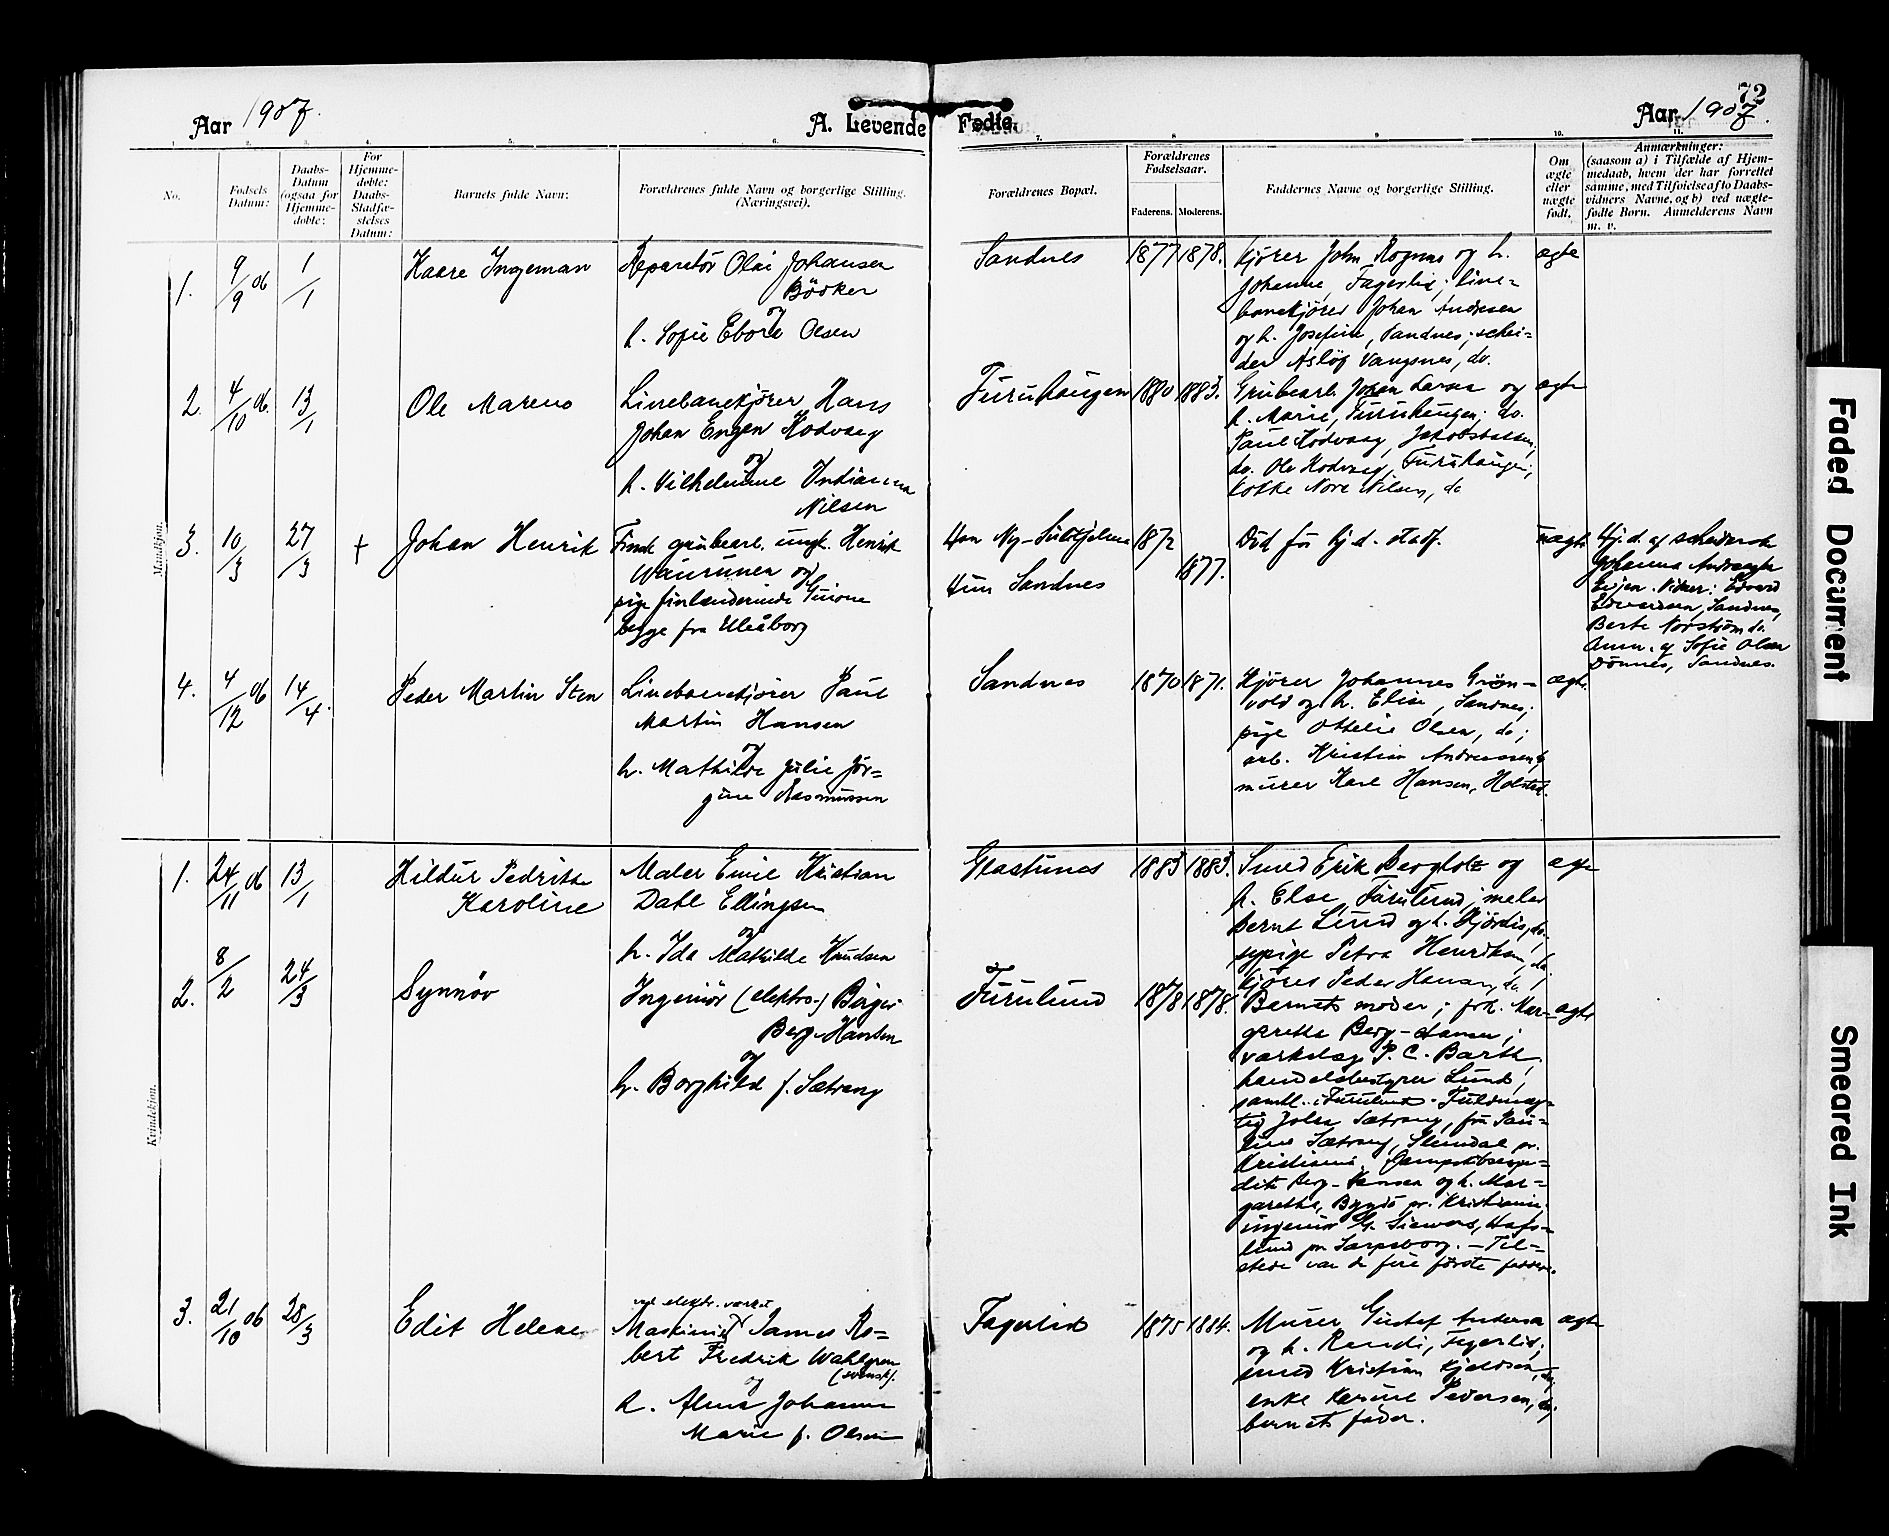 72
Aar 1907.
A. Levende Fødte.
Aar 1907.
1. 2. 3. 4. 5. 6. 7. 8. 9. 10. 11.
No.
Fødsels Datum:
Daabs-Datum (ogsaa for Hjemmedøbte:
For Hjemmedøbte: Daabs-Stadfæstelses Datum:
Barnets fulde Navn:
Forældrenes fulde Navn og borgerlige Stilling.
(Næringsvei).
Forældrenes Bopæl.
Forældrenes Fødselsaar.
Faderens. Moderens.
Faddernes Navne og borgerlige Stilling.
Om ægte eller uægte født.
Anmærkninger:
(saasom a) i Tilfælde af Hjemmedaab, hvem der har forrettet
samme, med Tilføielse af to Daabsvidners Navne, og b) ved uægtefødte Børn. Anmelderens Navn
m. v.
Mandkjøn.
1. 9/9 06 1/1 Kaare Ingeman
Reparatør Olai Johansen
Böoker
og
h. Sofie Ebore Olsen
Sandnes 1877 1878.
Kjører John Rognas og h.
Johanne, Fagerlid; line-
banekjører Johan Andersen
og h. Josefine, Sandnes; schei-
der Asløg Vangsnes, do.
ægte
2. 4/10 06. 13/1 Ole Mareno
Linebanekjører Hans
Johan Engen Kodvaag
og
h. Vilhelmine Indianna
Nilsen
Furuhaugen 1880 1883.
Grubearb. Johan Larsa og
h. Marie, Furuhaugen; do.
Paul Kodvaag, Jakobsbakken;
do. Ole Kodvaag, Furuhaugen;
kokke Nora Nilsen, do
ægte
3. 10/3 27/3 + Johan Henrik
Finsk grubearb. ungk. Henrik
og
pige finlænderinde
begge fra Uleåborg
Han Ny-Sulitjelma 1872
Hun Sandnes 1877.
Død før hj.d. stadf.
uægte
Hj.d. af scheiderske
Johanna
Edvard
Sandnes,
Berte Norstrøm do.
Anm. af Sofie Olsen
Dønnes, Sandnes.
4. 4/12 06 14/4. Peder Martin Sten
Linebanekjører Paul
Martin Hansen
og
h. Mathilde Julie Jör-
gine Rasmussen
Sandnes 1870 1871.
Kjører Johannes Grøn-
vold og h. Elise, Sandnes;
pige Ottelie Olsen, do;
arb. Kristian Andreassen,
murer Karl Hansen, Holsted.
ægte
Kvindekjøn.
1. 24/11 06 13/1 Hildur Fedrikke
Karoline
Maler Emil Kristian
Dahl Ellingsen
og
h. Ida Mathilde Knudsen
Glastunes 1883 1883.
Smed Erik Bergholtz og
h. Else, Furulund; maler
Bernt Lund og h. Hjørdis, do.
sypige Petra Henriksen, do.
kjører Peder Hansen, do
ægte
2. 8/2 24/3 Synnöv
Ingeniör (elektro-) Birger
Berg-Hansen
og
h. Borghild f. Sætrang
Furulund 1878 1878.
Barnets moder; frk. Mar-
grethe Berg-Hansen;
værkslæge P. C. Barth,
handelsbestyrer Lund,
samtl. i Furulund. Fuldmæg-
tig John Sætrang, fru Pau-
line Sætrang, Slemdal pr.
Kristiania. Dampskibsexpe-
ditør Berg-Hansen og h. Mar-
garethe, Bygdö pr. Kristiania.
ingeniør G. Siewers, Hafs-
lund pr. Sarpsborg. – Til-
stede var de fire første faddere.
ægte
3. 21/10 06 28/3 Edit Helene
ved elektr. værket
Maskinist James Ro-
bert Fredrik Wahlgren
(svensk).
og
h. Alma Johanne
Marie f. Olsen
Fagerlid 1875 1884.
Murer Gustaf Anderson
og h. Randi, Fagerlid;
smed Kristian Kjeldsen, do;
enke Karine Pedersen, do;
barnets fader.
ægte
Faded Document
Smeared Ink